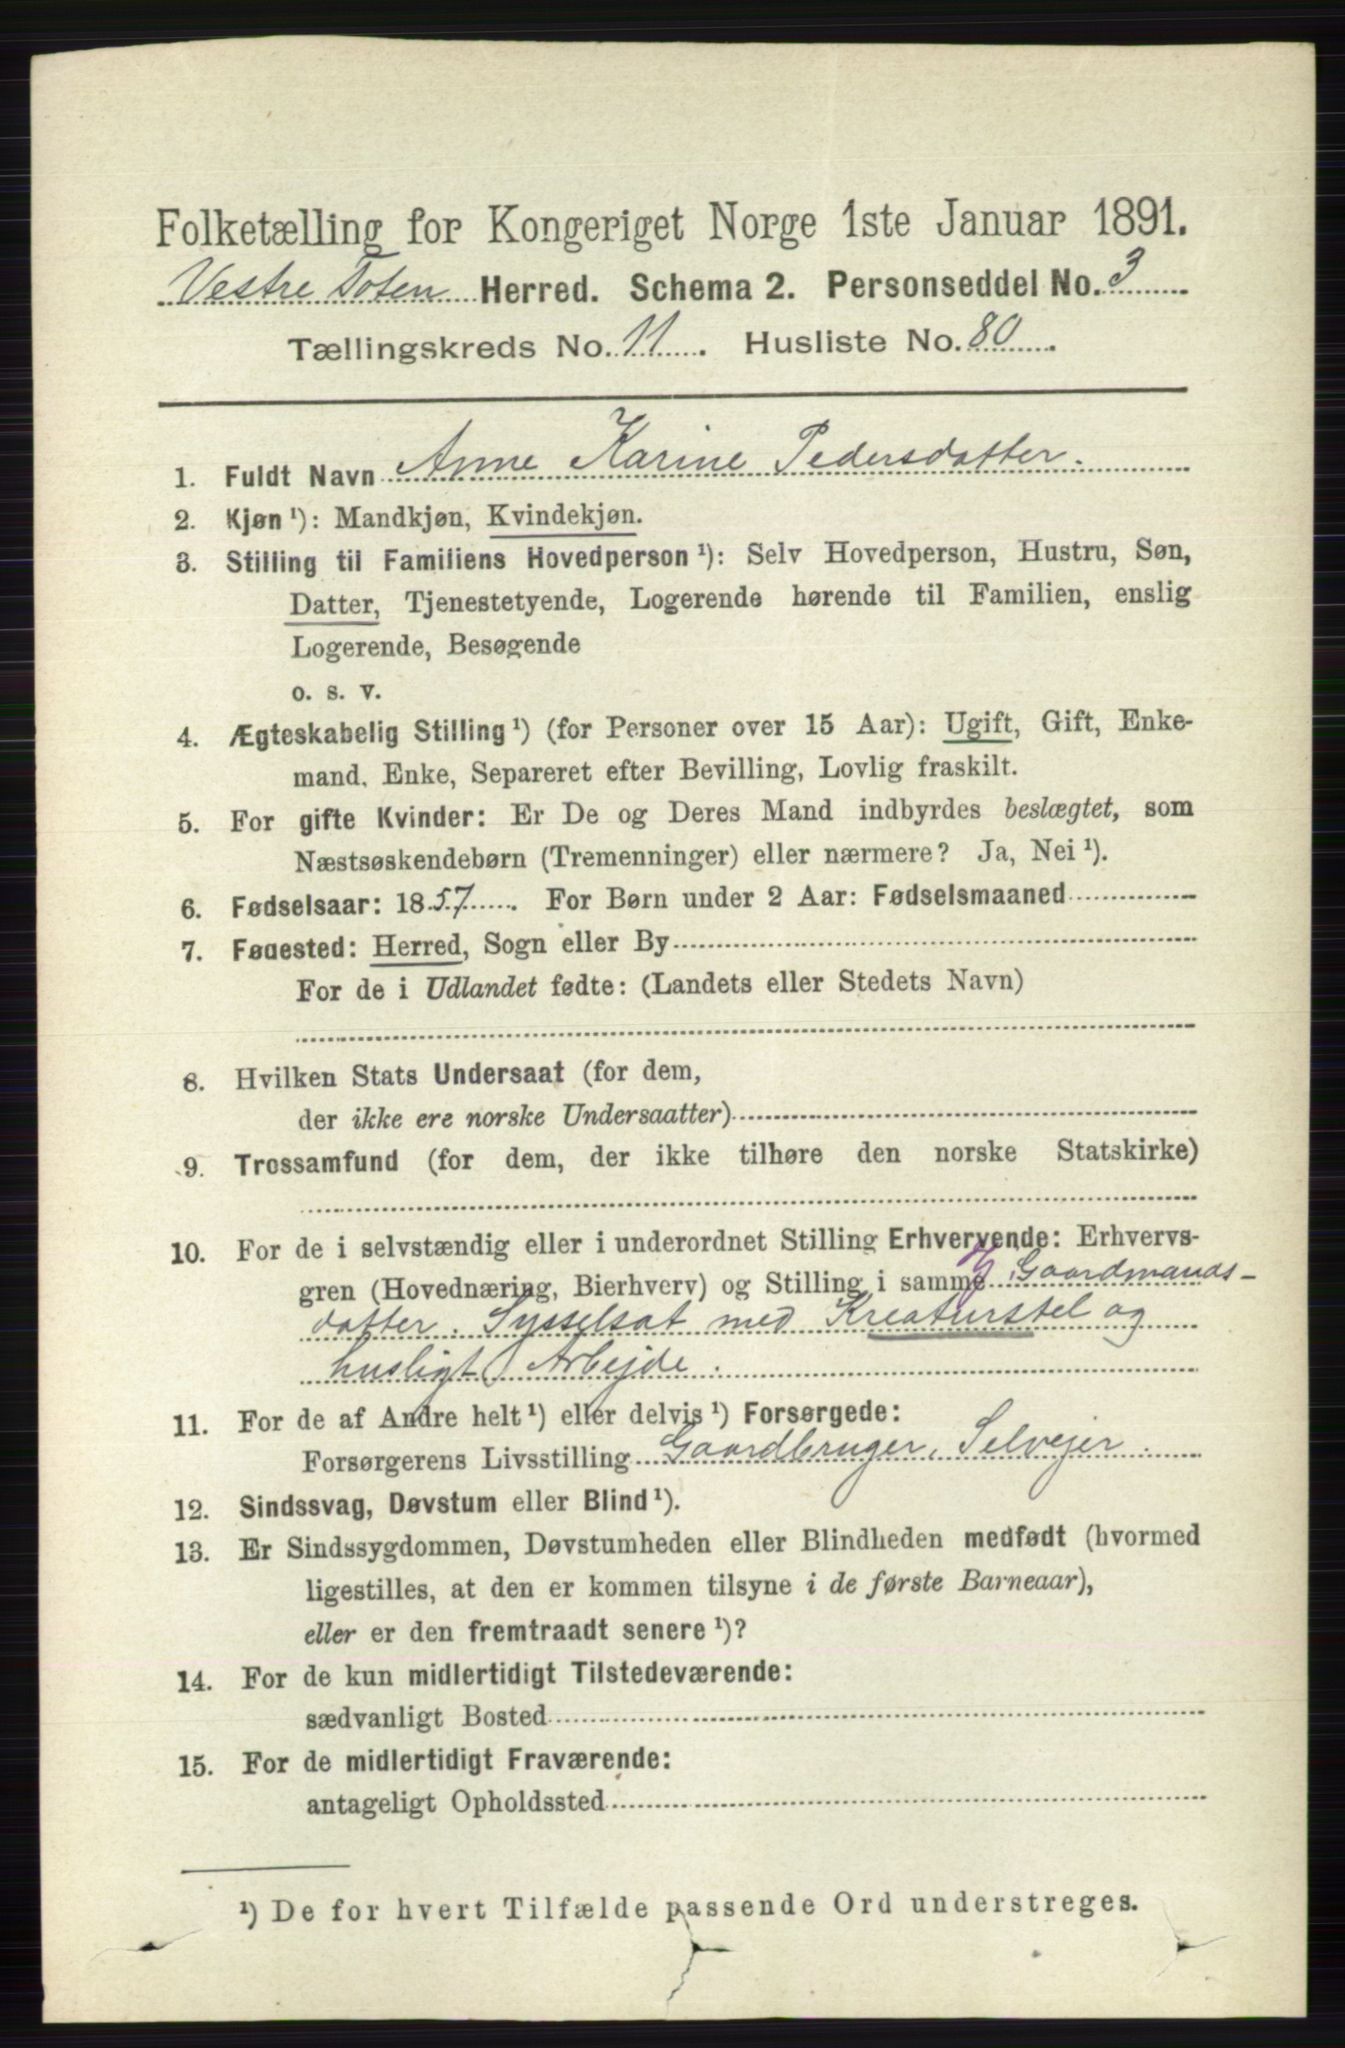 Folketælling for Kongeriget Norge 1ste Januar 1891.
Vestre Toten Herred. Schema 2. Personseddel No. 3
Tællingskreds No. 11. Husliste No. 80.
1. Fuldt Navn Anne Karine Pedersdatter.
2. Kjøn¹): Mandkjøn, Kvindekjøn.
3. Stilling til Familiens Hovedperson¹): Selv Hovedperson, Hustru, Søn,
Datter, Tjenestetyende, Logerende hørende til Familien, enslig
Logerende, Besøgende
o. s. v.
4. Ægteskabelig Stilling¹) (for Personer over 15 Aar): Ugift, Gift, Enke-
mand, Enke, Separeret efter Bevilling, Lovlig fraskilt.
5. For gifte Kvinder: Er De og Deres Mand indbyrdes beslægtet, som
Næstsøskendebørn (Tremenninger) eller nærmere? Ja, Nei¹).
6. Fødselsaar: 1857. For Børn under 2 Aar: Fødselsmaaned
7. Føuested: Herred, Sogn eller By
For de i Udlandet fødte: (Landets eller Stedets Navn)
8. Hvilken Stats Undersaat (for dem,
der ikke ere norske Undersaatter)
9. Trossamfund (for dem, der ikke tilhøre den norske Statskirke)
10. For de i selvstændig eller i underordnet Stilling Erhvervende: Erhvervs-
gren (Hovednæring, Bierhverv) og Stilling i samme Gaardmands-
datter. Sysselsat med Kreaturstel og
husligt Arbejde.
11. For de af Andre helt¹) eller delvis¹) Forsørgede:
Forsørgerens Livsstilling Gaardbruger, Selvejer.
12. Sindssvag, Døvstum eller Blind¹).
13. Er Sindssygdommen, Døvstumheden eller Blindheden medfødt (hvormed
ligestilles, at den er kommen tilsyne i de første Barneaar),
eller er den fremtraadt senere¹)?
14. For de kun midlertidigt Tilstedeværende:
sædvanligt Bosted
15. For de midlertidigt Fraværende:
antageligt Opholdssted
¹) De for hvert Tilfælde passende Ord understreges.